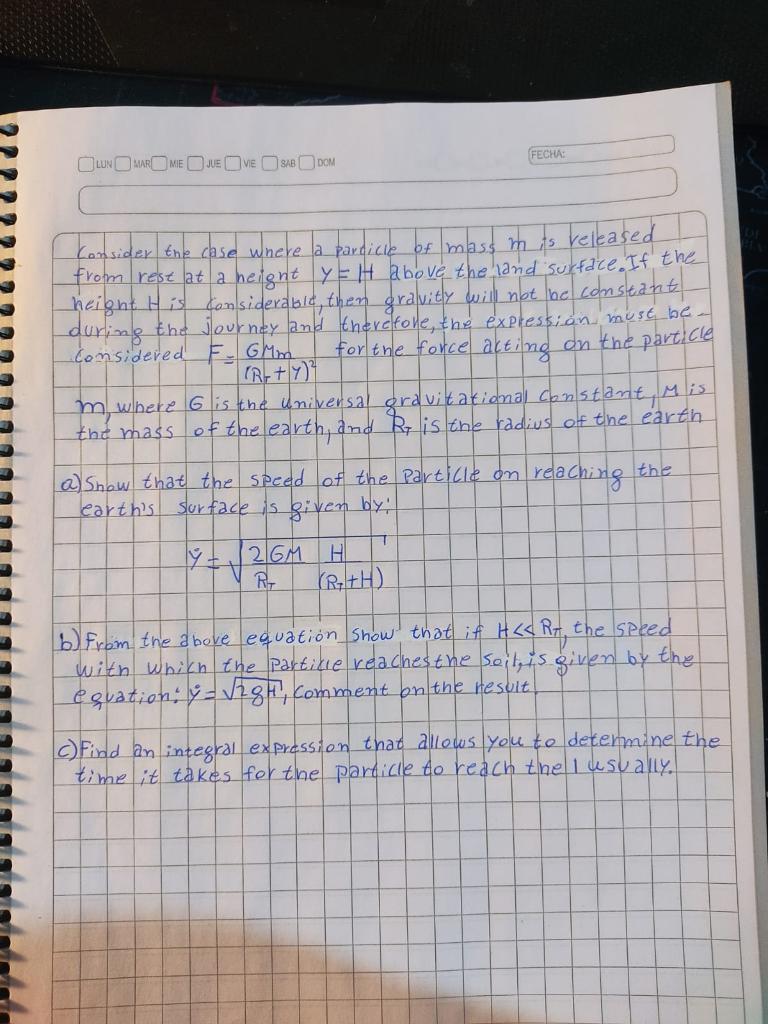 LUN MAR MIE JUE VIE SAB DOM FECHA:
Consider the case where a particle of mass m is released
from rest at a height y = H above the land surface. If the
height H is considerable, then gravity will not be constant
during the journey and therefore, the expression must be
considered F = GMm/(R_T + y)² for the force acting on the particle
m, where G is the universal gravitational constant, M is
the mass of the earth, and R_T is the radius of the earth
a) Show that the speed of the particle on reaching the
earth's surface is given by:
ẏ = √(2GM/R_T H/(R_T+H))
b) From the above equation show that if H << R_T, the speed
with which the particle reaches the soil, is given by the
equation: ẏ = √2gH, comment on the result.
c) Find an integral expression that allows you to determine the
time it takes for the particle to reach the l usually.